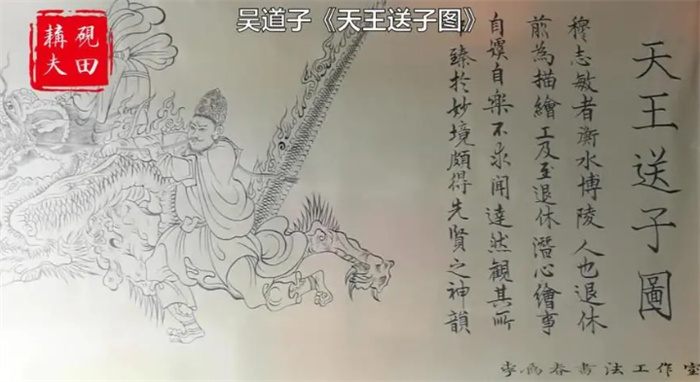 吴道子《天王送子图》
硯田
耩夫
天王送子圖
穆志敏者衡水博陵人也退休
前為描繪工及至退休潛心繪事
自虞自樂不求聞達然觀其所
臻於妙境頗得先賢之神韻
春書法工作室